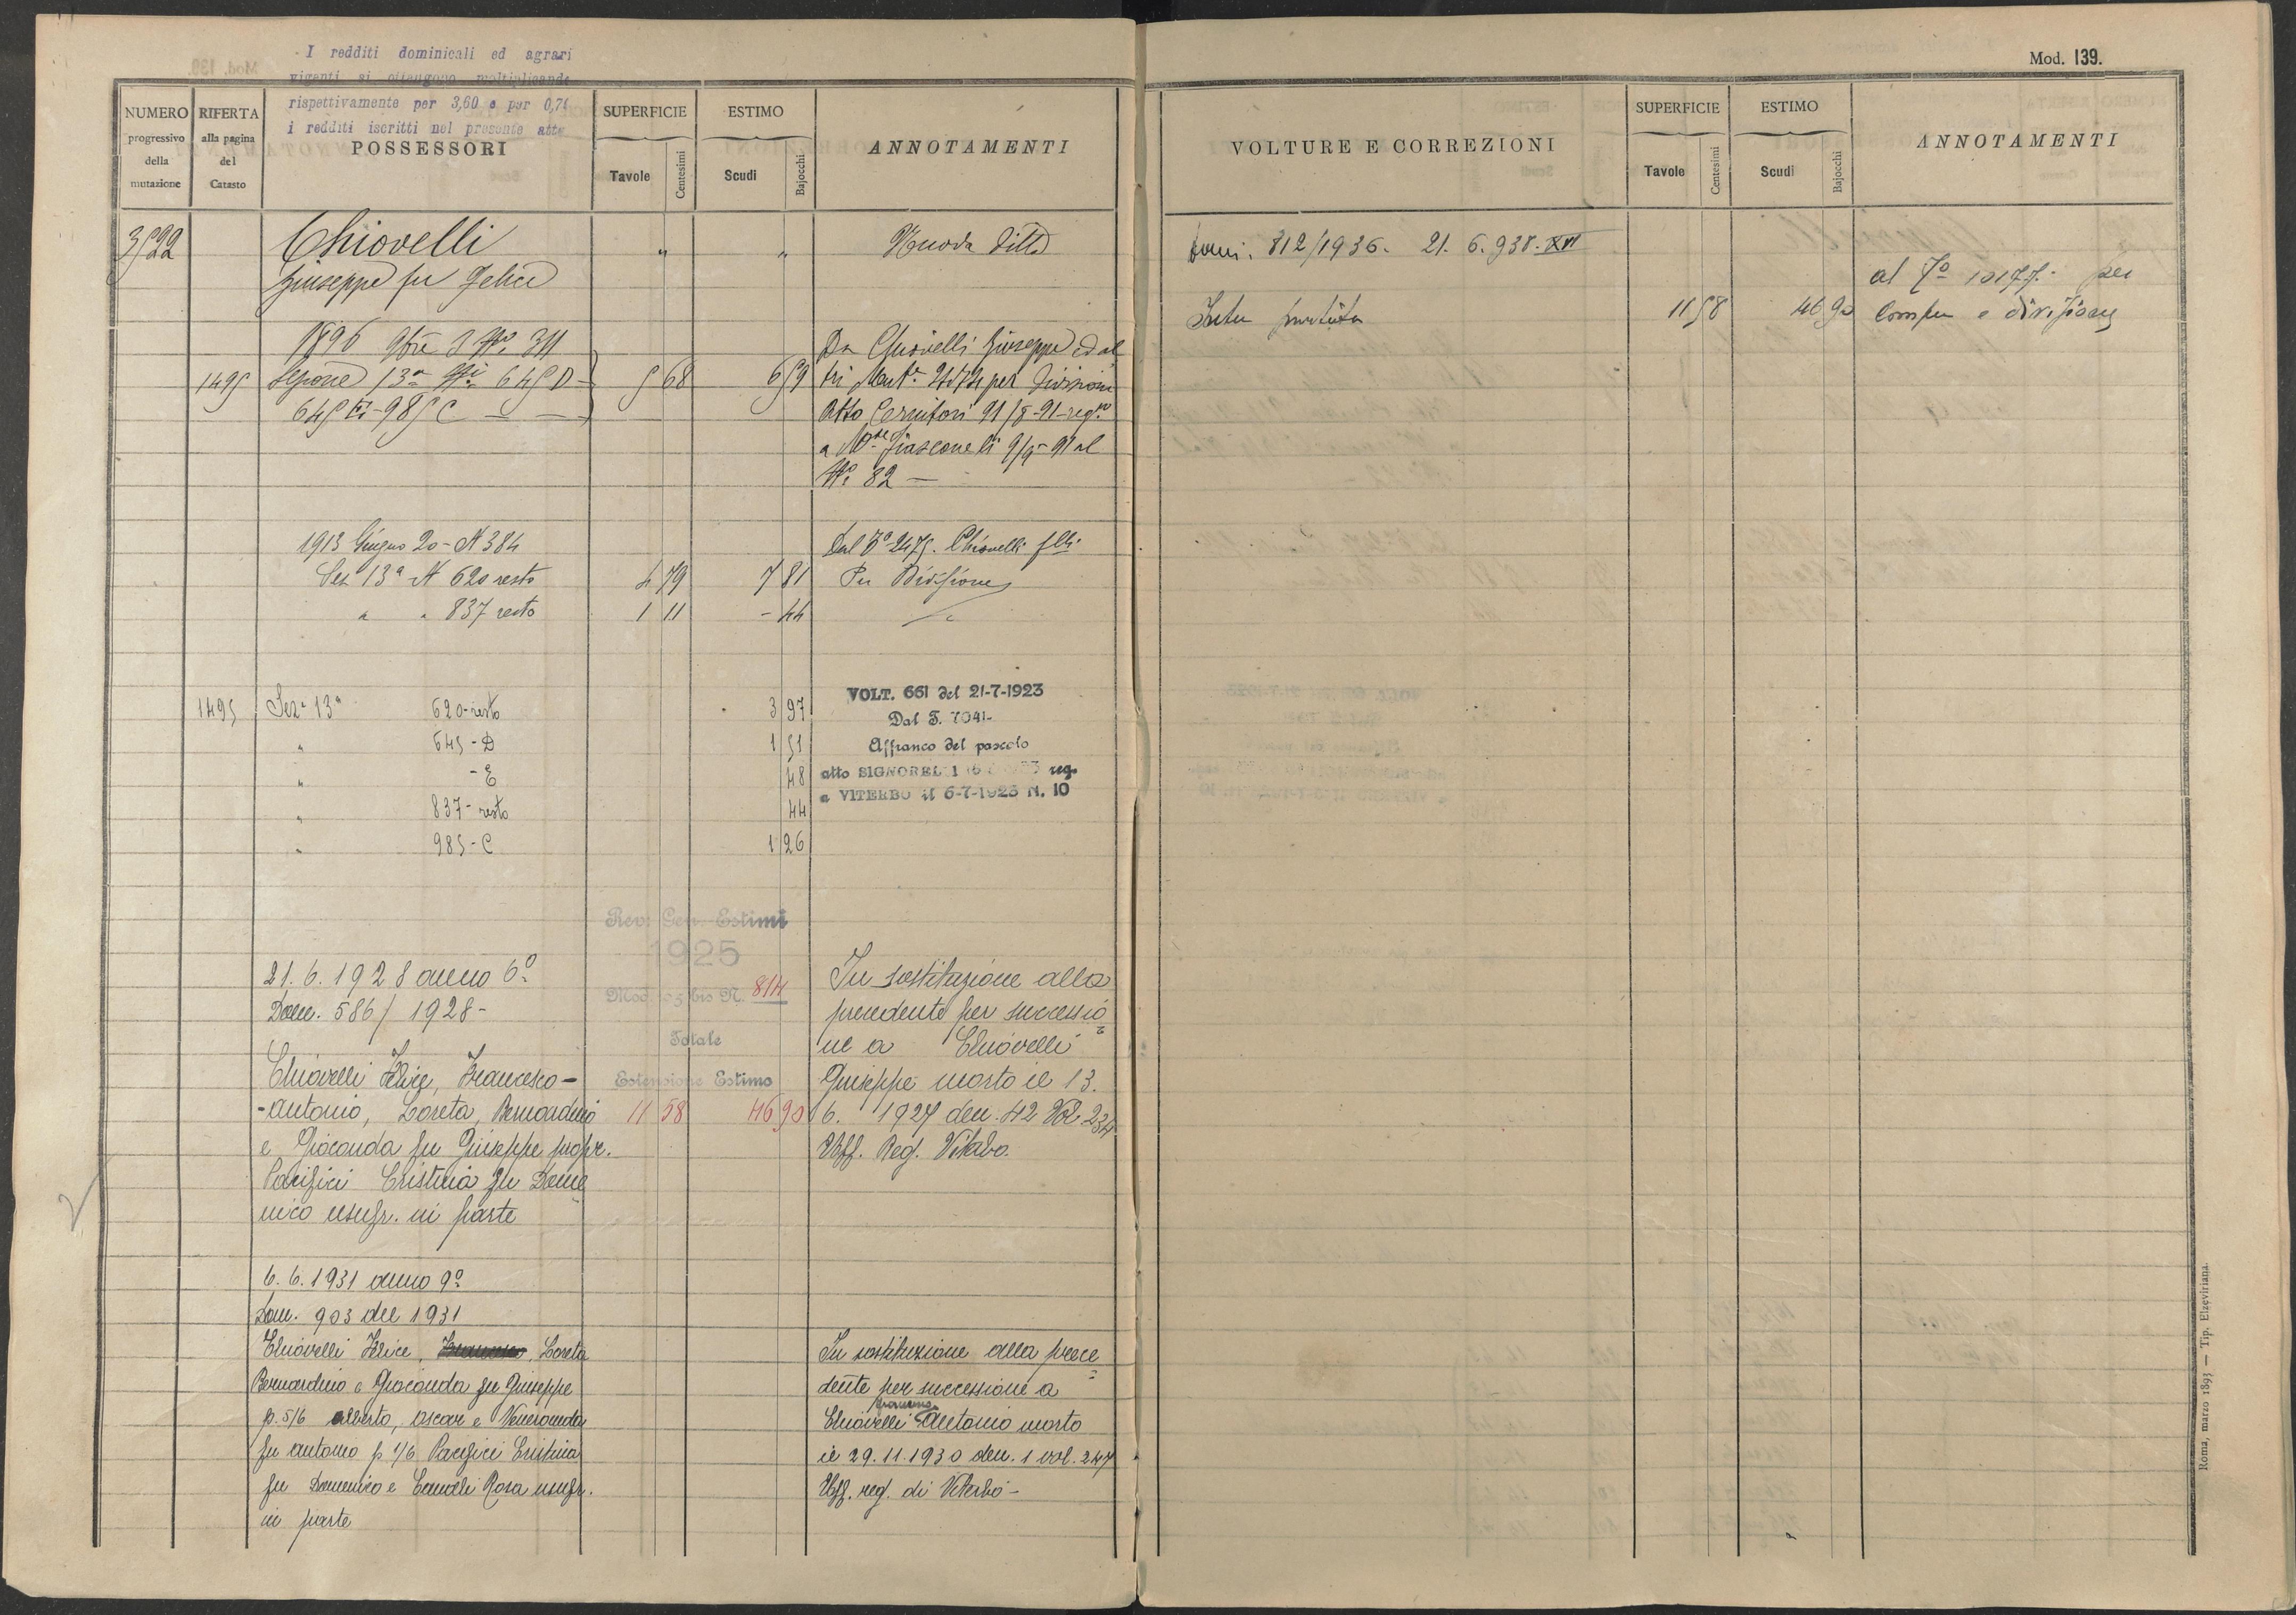 I redditi dominicali ed agrari
vigenti si ottengono moltiplicando
rispettivamente per 3,60 e per 0,74
i redditi iscritti nel presente atto
NUMERO progressivo della mutazione
RIFERTA alla pagina del Catasto
POSSESSORI
SUPERFICIE
Tavole
Centesimi
ESTIMO
Scudi
Bajocchi
ANNOTAMENTI
3522 Chiovelli " " Nuova Ditta
Giuseppe fu Felice
1896 9bre 3 No 311
Da Chiovelli Giuseppe ed al
1495 Sezione 13a 645 D 5 68 6 59 tri per Divisione
645 E - 985 C Atto 91
a 91 al
No 82 —
1913 Giugno 20 - N 384 Dal 2475. Chiovelli flli
Sez 13a N 620 resto 4 79 7 81 Per Divisione
" " 837 resto 1 11 - 44 "
1495 Sez. 13a 620-resto 3 97
" 645-D 1 51
" -E 48
" 837-resto 44
" 985-C 1 26
VOLT. 661 del 21-7-1923
Dal T. 7041-
Affranco del pascolo
atto SIGNORELLI reg.
a VITERBO il 6-7-1923 N. 10
Rev. Gen. Estimi
1925
Mod. 103 bis N. 814
Totale
Estensione Estimo
11 58 46 90
21.6.1928 anno 6o
Dom. 586/1928-
Chiovelli Felice, Francesco-
-Antonio, Loreta, Bernardino
e Gioconda fu Giuseppe propr.
Pacifici Cristina fu Dome
nico usufr. in parte
In sostituzione alla
precedente per successio
ne a Chiovelli
Giuseppe morto il 13.
6. 1927 den. 42 Vol 234
Uff. Reg. Viterbo.
2
6.6.1931 anno 9o
Dom. 903 del 1931
Chiovelli Felice, Loreta
Bernardino e Gioconda fu Giuseppe
p. 5/6 Alberto, Oscar e Veneranda
fu Antonio p 1/6 Pacifici Cristina
fu Domenico e Rosa usufr.
in parte
In sostituzione alla prece
dente per successione a
Francesco
Chiovelli Antonio morto
il 29.11.1930 den. 1 vol. 247
Uff. reg. di Viterbo-
Mod. 139.
VOLTURE E CORREZIONI
SUPERFICIE
Tavole
Centesimi
ESTIMO
Scudi
Bajocchi
ANNOTAMENTI
Dom. 812/1936. 21.6.938.XVI
al 10177. per
Intera partita 11 58 46 90 Compra e divisione
Roma, marzo 1895 — Tip. Elzeviriana.